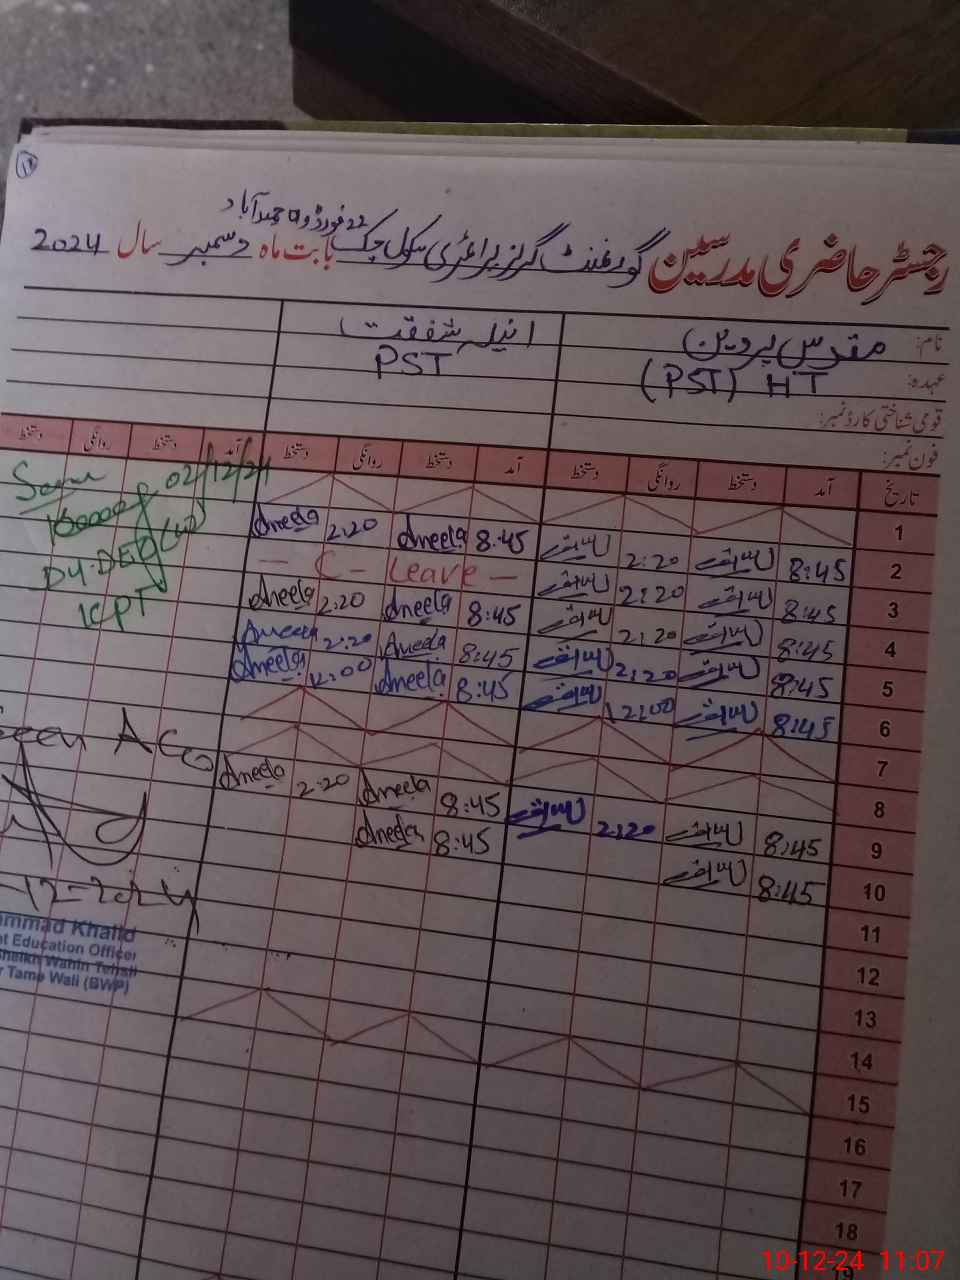 رجسٹر حاضری مدرسین گورنمنٹ گرلز پرائمری سکول چک 22 فورڈواہ حمید آباد بابت ماہ دسمبر سال 2024
نام: مقدس پروین انیلہ شفقت
عہدہ: (PST) HT PST
قومی شناختی کارڈ نمبر:
فون نمبر:
تاریخ آمد دستخط روانگی دستخط آمد دستخط روانگی دستخط آمد دستخط روانگی دستخط
1
2 8:45 2:20 8:45 Aneela 2:20 Aneela
3 8:45 2:20 - C - Leave -
4 8:45 2:20 8:45 Aneela 2:20 Aneela
5 8:45 2:20 8:45 Aneela 2:20 Aneela
6 8:45 12:00 8:45 Aneela 12:00 Aneela
7
8
9 8:45 2:20 8:45 Aneela 2:20 Aneela
10 8:45 8:45 Aneela
11
12
13
14
15
16
17
18
19
02/12/24
Dy. DEO (W)
KPT
Seen
-12-2024
ammad Khalid
nt Education Officer
Sheikh Wahin Tehsil
r Tame Wali (BWP)
10-12-24 11:07